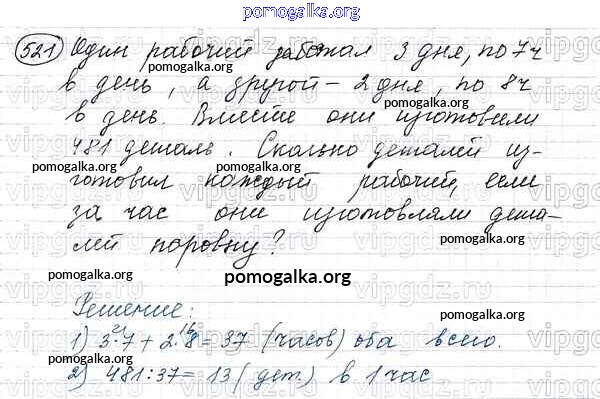 pomogalka.org
521 Один рабочий работал 3 дня, по 7ч
pomogalka.org
в день, а другой - 2 дня, по 8ч
в день. Вместе они изготовили
pomogalka.org
481 деталь. Сколько деталей из-
pomogalka.org
готовил каждый рабочий, если
за час они изготовляли дета-
лей поровну?
pomogalka.org
pomogalka.org
Решение:
pomogalka.org
21 16
1) 3·7 + 2·8 = 37 (часов) оба всего.
2) 481:37 = 13 (дет.) в 1 час
vipgdz.ru